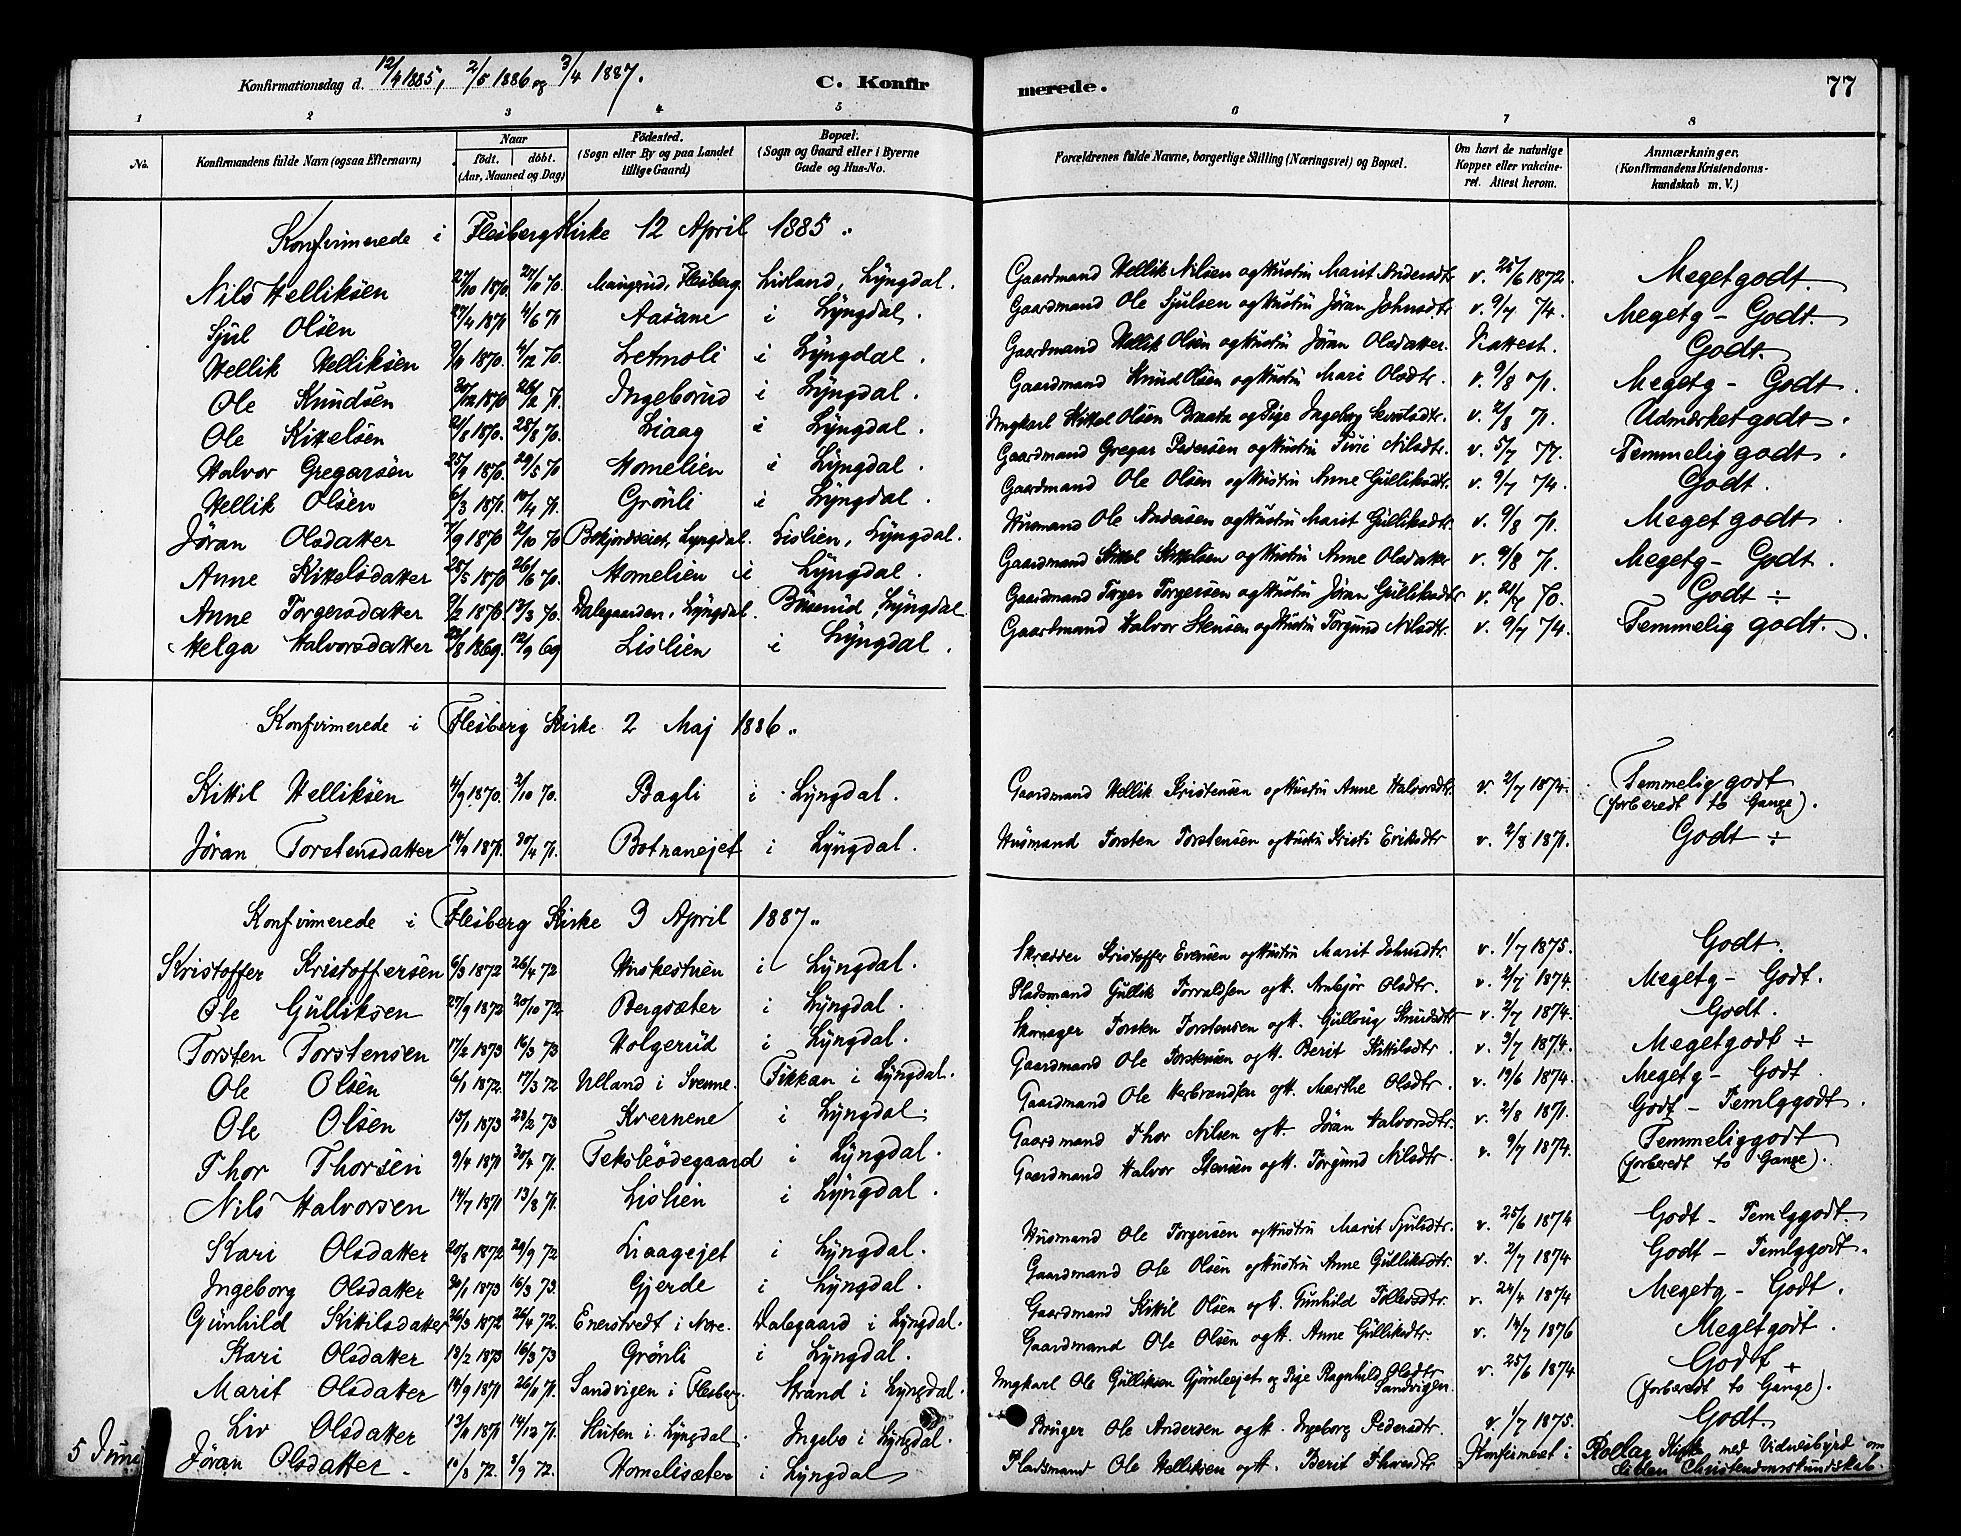 Konfirmationsdag d. 12/4 1885, 2/5 1886 og 3/4 1887. C. Konfir
merede. 77
1 2 3 4 5 6 7 8
No. Konfirmandens fulde Navn (ogsaa Efternavn) Naar født. døbt. (Aar, Maaned og Dag) Fødested. (Sogn eller By og paa Landet tillige Gaard) Bopæl. (Sogn og Gaard eller i Byerne Gade og Hus-No. Forældrenes fulde Navne, borgerlige Stilling (Næringsvei) og Bopæl. Om havt de naturlige Kopper eller vakcineret. Attest herom. Anmærkninger. (Konfirmandens Kristendomskundskab m. V.)
Konfirmerede i Flesberg Kirke 12 April 1885.
Nils Helliksen 27/10 1870. Flesberg. Livland, Lyngdal. Gaardmand Hellik Nilsen og Hustru Marit Andersdtr v. 25/6 1872. Meget godt.
Sjul Olsen 27/4 1871 4/6 71 Aasane i Lyngdal. Gaardmand Ole Sjulsen og Hustru Jøran Johnsdtr v. 9/7 74. Megetg - Godt.
Hellik Helliksen 4/12 70. Letmoli i Lyngdal. Gaardmand Hellik Olsen og Hustru Jøran Olsdatter. Godt.
Ole Knudsen 26/2 71. Ingeborud i Lyngdal. Gaardmand Knud Olsen og Hustru Mari Olsdtr. v. 9/8 71. Megetg - Godt.
Ole Kittelsen 21/8 1870. 28/8 70. Liaag i Lyngdal. Ungkarl Kittel Olsen Braata og Pige Ingeborg v. 2/8 71. Udmærket godt.
Halvor Gregarsen 29/5 70 Homelien i Lyngdal. Gaardmand Gregar Pedersen og Hustru Turi Nilsdtr. v. 5/7 77. Temmelig godt.
Hellik Olsen 6/3 1871. 10/4 71. Grønli i Lyngdal. Gaardmand Ole Olsen og Hustru Anne Gulliksdtr. v. 9/7 74. Godt.
Jøran Olsdatter 7/9 1870 2/10 70 Lyngdal. Lislien, Lyngdal. Husmand Ole Andersen og Hustru Marit Gulliksdtr v. 9/8 71. Meget godt
Anne Kittelsdatter 28/5 1870 26/6 70. Homelien i Lyngdal. Gaardmand Kittel Kittelsen og Hustru Anne Olsdatter v. 9/8 71. Megetg - Godt.
Anne Torgersdatter 9/2 1870 13/3 70. Dalegaarden, Lyngdal. Buserud, Lyngdal. Gaardmand Torger Torgersen og Hustru Jøran Gulliksdtr v. 21/7 70. Godt ÷
Helga Halvorsdatter 23/8 1869. 12/9 69 Lislien i Lyngdal. Gaardmand Halvor Stensen og Hustru Torgund Nilsdtr. v. 9/7 74. Temmelig godt.
Konfirmerede i Flesberg Kirke 2 Maj 1886.
Kittil Helliksen 4/9 1870. 2/10 70. Bagli i Lyngdal. Gaardmand Hellik Kristensen og Hustru Anne Halvorsdtr. v 2/7 1874. Temmelig godt
(forberedt to Gange).
Jøran Torstensdatter 30/4 71. Botnanejet i Lyngdal. Husmand Torsten Torstensen og Hustru Kristi Eriksdtr v. 2/8 1871. Godt ÷
Konfirmerede i Flesberg Kirke 3 April 1887.
Kristoffer Kristoffersen 6/3 1872 26/4 72 Hvskestuen i Lyngdal. Skrædder Kristoffer Evensen og Hustru Marit Johnsdtr. v. 1/7 1875. Godt.
Ole Gulliksen 27/9 1872 20/10 72 Bergsæter i Lyngdal. Pladsmand Gullik Torvaldsen og H. Arnbjør Olsdtr. v. 2/7 1874. Megetg - Godt.
Torsten Torstensen 17/2 1873 16/3 73 Holgerud i Lyngdal. Torsten Torstensen og H. Gullaug Knudsdtr v. 2/7 1874. Godt.
Ole Olsen 6/1 1872. 17/3 72 Ulland i Svenne. Fikkan i Lyngdal. Gaardmand Ole Torstensen og H. Berit Kittilsdtr v. 3/7 1874. Meget godt ÷
Ole Olsen 15/1 1873 23/2 73 Kvernene i Lyngdal. Gaardmand Ole Herbrandsen og H. Marthe Olsdtr. v. 19/6 1874. Megetg - Godt
Thor Thorsen 9/4 1871 30/4 71. Teksleødegaard i Lyngdal. Gaardmand Thor Nilsen og H. Jøran Halvorsdtr. v. 2/8 1871. Godt - Temlggodt.
Nils Halvorsen 14/7 1871 13/8 71. Lislien i Lyngdal. Gaardmand Halvor Stensen og H. Torgund Nilsdtr. v. 9/7 1874. Temmeliggodt
(forberedt to Gange).
Kari Olsdatter 20/8 1872 29/9 72 Liaagejet i Lyngdal. Husmand Ole Torgersen og Hustru Marit Sjulsdtr. v. 25/6 1874 Godt - Temlggodt.
Ingeborg Olsdatter 30/1 1873 16/3 73. Gjerde i Lyngdal. Gaardmand Ole Olsen og Hustru Anne Gulliksdtr. v. 2/7 1874 Godt - Temlggodt.
Gunhild Kittilsdatter 26/3 1872 26/4 72. Enerstvedt i Nore. Dalegaard i Lyngdal. Gaardmand Kittil Olsen og H. Gunhild Tollevsdtr. v. 24/4 1874 Megetg - Godt.
Kari Olsdatter 13/2 1873 16/3 73 Grønli i Lyngdal. Gaardmand Ole Olsen og H. Anne Gulliksdtr. v. 14/7 1876 Meget godt.
Marit Olsdatter 14/9 1871 26/11 71. Sandvigen i Flesberg. Strand i Lyngdal. Ungkarl Ole Gulliksen og Pige Ragnhild Olsdtr Sandvigen. v. 25/6 1874 Godt ÷
(forberedt to Gange).
Liv Olsdatter 13/11 1871 14/12 71. Sluten i Lyngdal. Ingebo i Lyngdal. Bruger Ole Andersen og H. Ingeborg Pedersdtr. v. 1/7 1875. Godt.
5 Juni Jøran Olsdatter. 8/9 72. Homelisæter i Lyngdal Pladsmand Ole Helliksen og H. Berit Konfirmeret i Rollag Kirke med Vidnesbyrd om
liden Christendomskundskab.